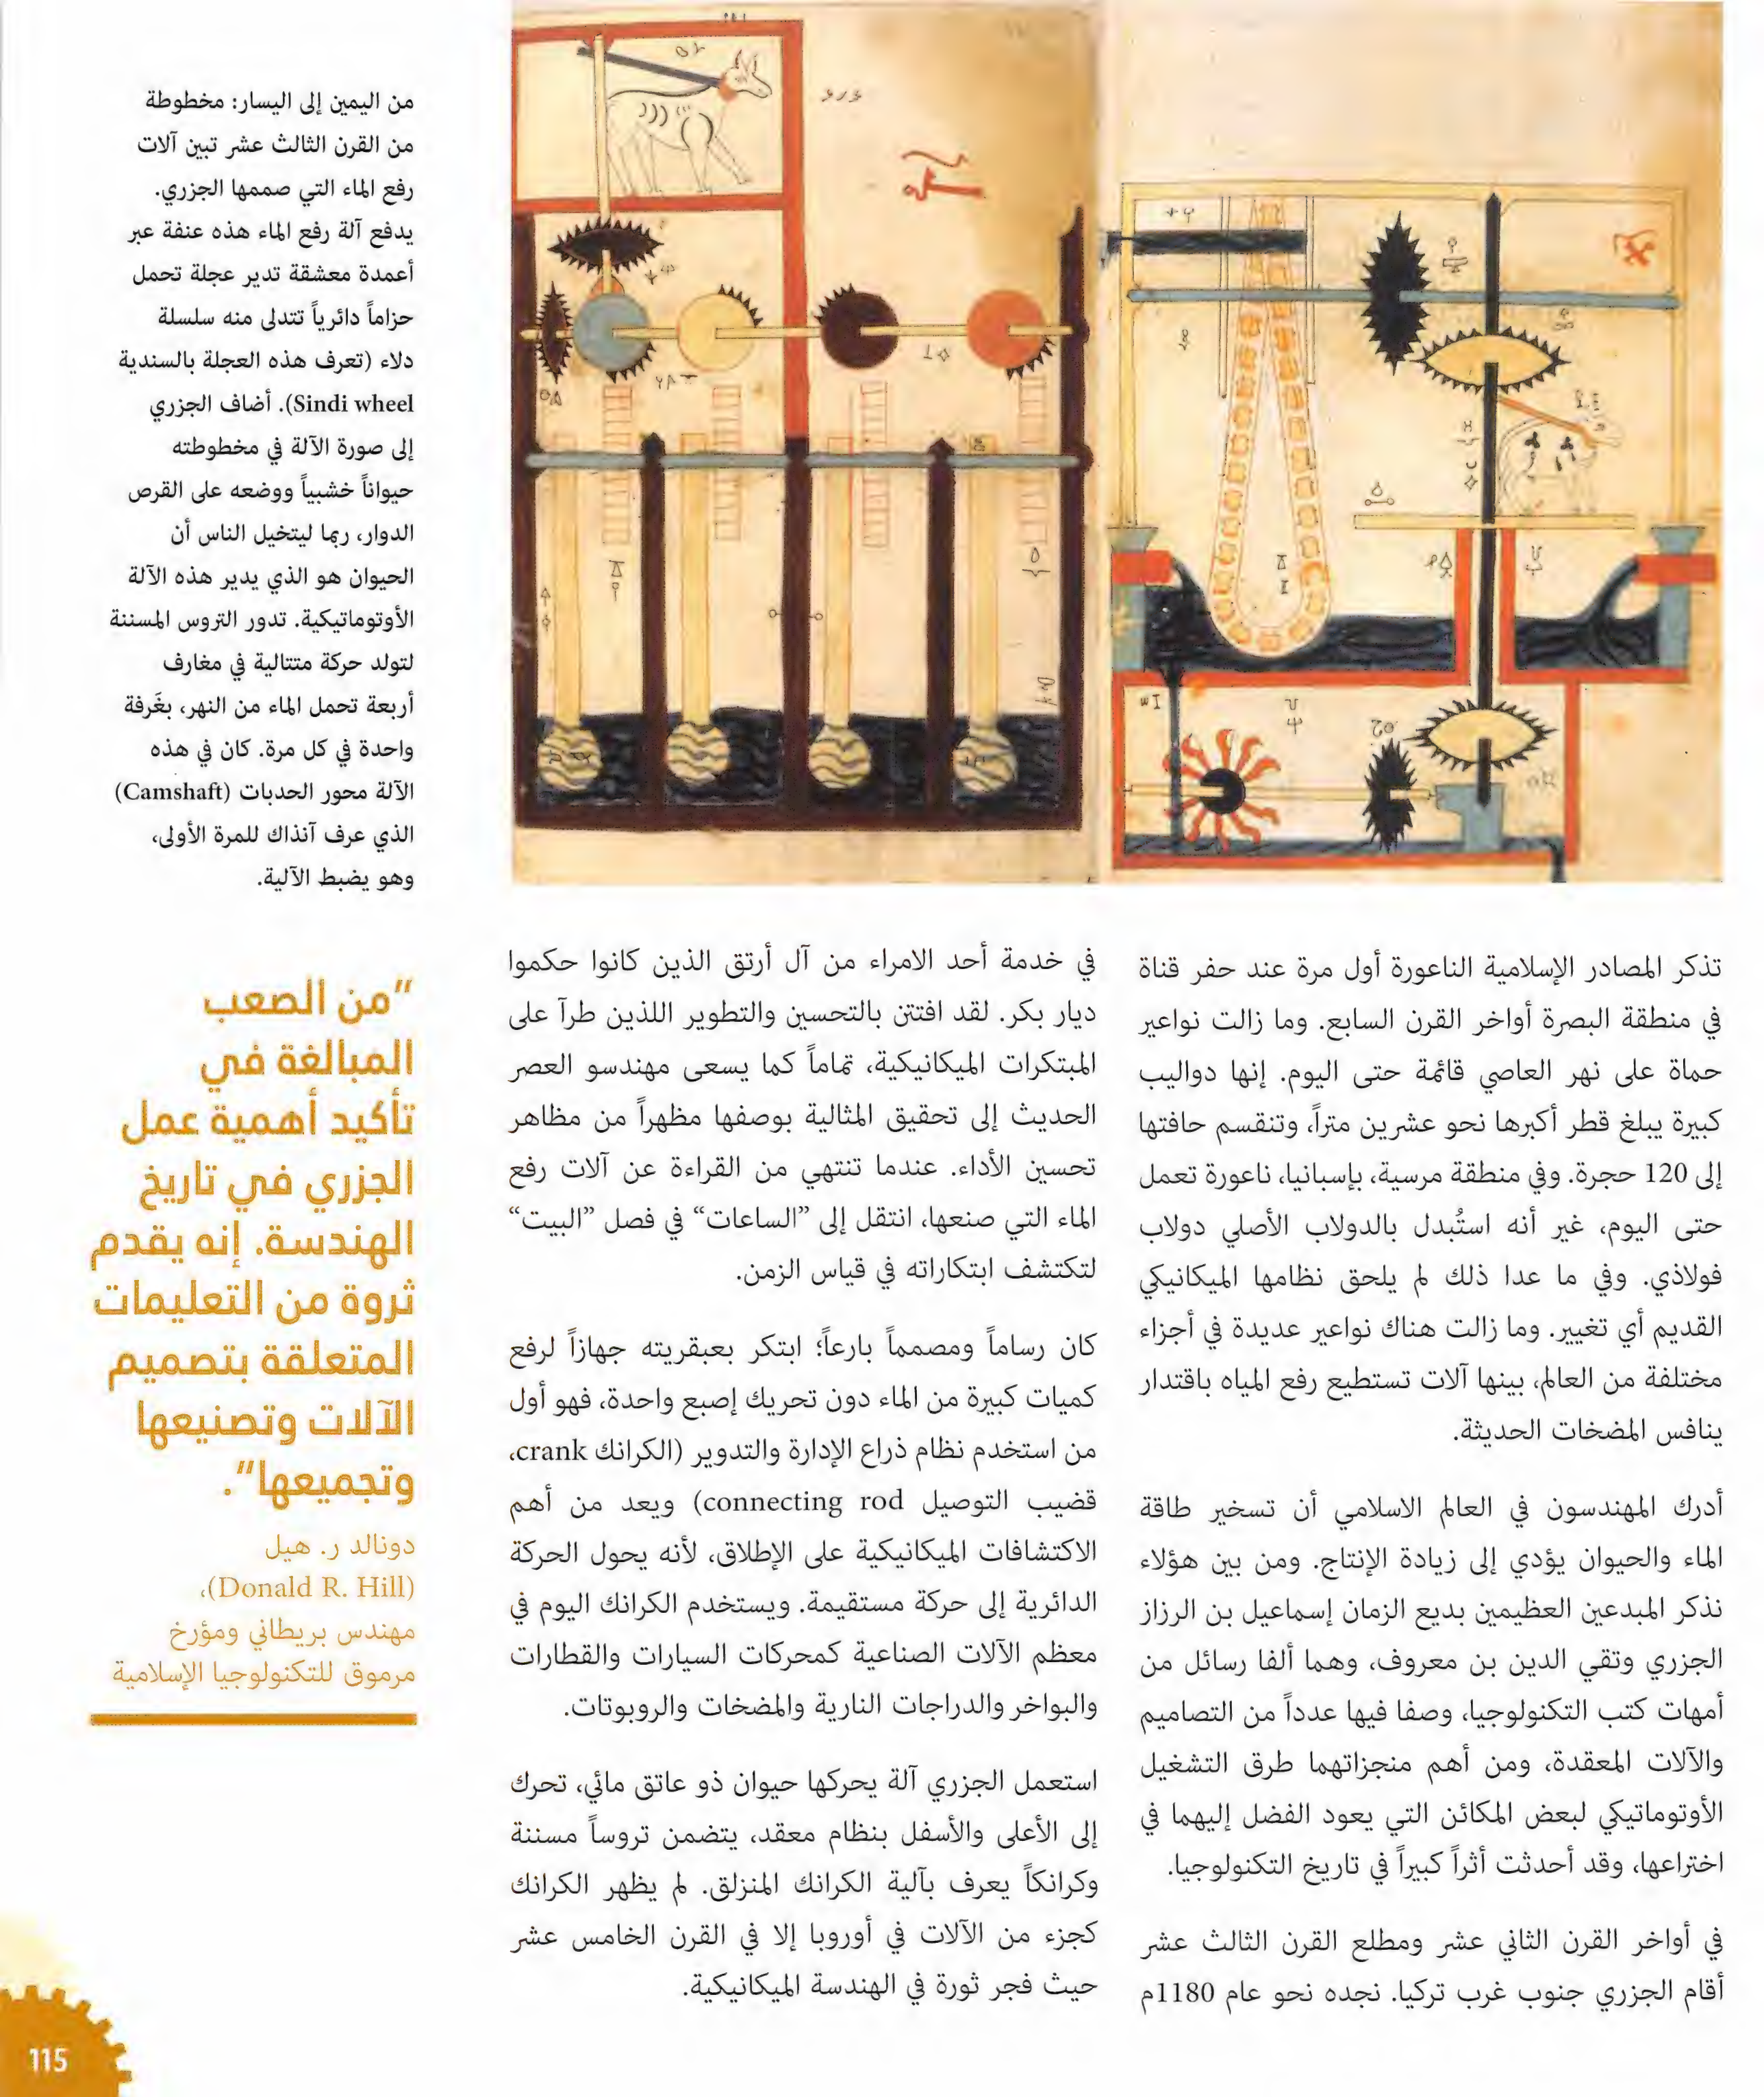 من اليمين إلى اليسار: مخطوطة
من القرن الثالث عشر تبين آلات
رفع الماء التي صممها الجزري.
يدفع آلة رفع الماء هذه عنفة عبر
أعمدة معشقة تدير عجلة تحمل
حزاماً دائرياً تتدلى منه سلسلة
دلاء (تعرف هذه العجلة بالسندية
Sindi wheel). أضاف الجزري
إلى صورة الآلة في مخطوطته
حيواناً خشبياً ووضعه على القرص
الدوار، ربما ليتخيل الناس أن
الحيوان هو الذي يدير هذه الآلة
الأوتوماتيكية. تدور التروس المسننة
لتولد حركة متتالية في مغارف
أربعة تحمل الماء من النهر، بغَرفة
واحدة في كل مرة. كان في هذه
الآلة محور الحدبات (Camshaft)
الذي عرف آنذاك للمرة الأولى،
وهو يضبط الآلية.
تذكر المصادر الإسلامية الناعورة أول مرة عند حفر قناة
في منطقة البصرة أواخر القرن السابع. وما زالت نواعير
حماة على نهر العاصي قائمة حتى اليوم. إنها دواليب
كبيرة يبلغ قطر أكبرها نحو عشرين متراً، وتنقسم حافتها
إلى 120 حجرة. وفي منطقة مرسية، بإسبانيا، ناعورة تعمل
حتى اليوم، غير أنه استُبدل بالدولاب الأصلي دولاب
فولاذي. وفي ما عدا ذلك لم يلحق نظامها الميكانيكي
القديم أي تغيير. وما زالت هناك نواعير عديدة في أجزاء
مختلفة من العالم، بينها آلات تستطيع رفع المياه باقتدار
ينافس المضخات الحديثة.
أدرك المهندسون في العالم الاسلامي أن تسخير طاقة
الماء والحيوان يؤدي إلى زيادة الإنتاج. ومن بين هؤلاء
نذكر المبدعين العظيمين بديع الزمان إسماعيل بن الرزاز
الجزري وتقي الدين بن معروف، وهما ألفا رسائل من
أمهات كتب التكنولوجيا، وصفا فيها عدداً من التصاميم
والآلات المعقدة، ومن أهم منجزاتهما طرق التشغيل
الأوتوماتيكي لبعض المكائن التي يعود الفضل إليهما في
اختراعها، وقد أحدثت أثراً كبيراً في تاريخ التكنولوجيا.
في أواخر القرن الثاني عشر ومطلع القرن الثالث عشر
أقام الجزري جنوب غرب تركيا. نجده نحو عام 1180م
في خدمة أحد الامراء من آل أرتق الذين كانوا حكموا
ديار بكر. لقد افتتن بالتحسين والتطوير اللذين طرآ على
المبتكرات الميكانيكية، تماماً كما يسعى مهندسو العصر
الحديث إلى تحقيق المثالية بوصفها مظهراً من مظاهر
تحسين الأداء. عندما تنتهي من القراءة عن آلات رفع
الماء التي صنعها، انتقل إلى ”الساعات“ في فصل ”البيت“
لتكتشف ابتكاراته في قياس الزمن.
كان رساماً ومصمماً بارعاً؛ ابتكر بعبقريته جهازاً لرفع
كميات كبيرة من الماء دون تحريك إصبع واحدة، فهو أول
من استخدم نظام ذراع الإدارة والتدوير (الكرانك crank،
قضيب التوصيل connecting rod) ويعد من أهم
الاكتشافات الميكانيكية على الإطلاق، لأنه يحول الحركة
الدائرية إلى حركة مستقيمة. ويستخدم الكرانك اليوم في
معظم الآلات الصناعية كمحركات السيارات والقطارات
والبواخر والدراجات النارية والمضخات والروبوتات.
استعمل الجزري آلة يحركها حيوان ذو عاتق مائي، تحرك
إلى الأعلى والأسفل بنظام معقد، يتضمن تروساً مسننة
وكرانكاً يعرف بآلية الكرانك المنزلق. لم يظهر الكرانك
كجزء من الآلات في أوروبا إلا في القرن الخامس عشر
حيث فجر ثورة في الهندسة الميكانيكية.
”من الصعب
المبالغة في
تأكيد أهمية عمل
الجزري في تاريخ
الهندسة. إنه يقدم
ثروة من التعليمات
المتعلقة بتصميم
الآلات وتصنيعها
وتجميعها“.
دونالد ر. هيل
(Donald R. Hill)،
مهندس بريطاني ومؤرخ
مرموق للتكنولوجيا الإسلامية
115